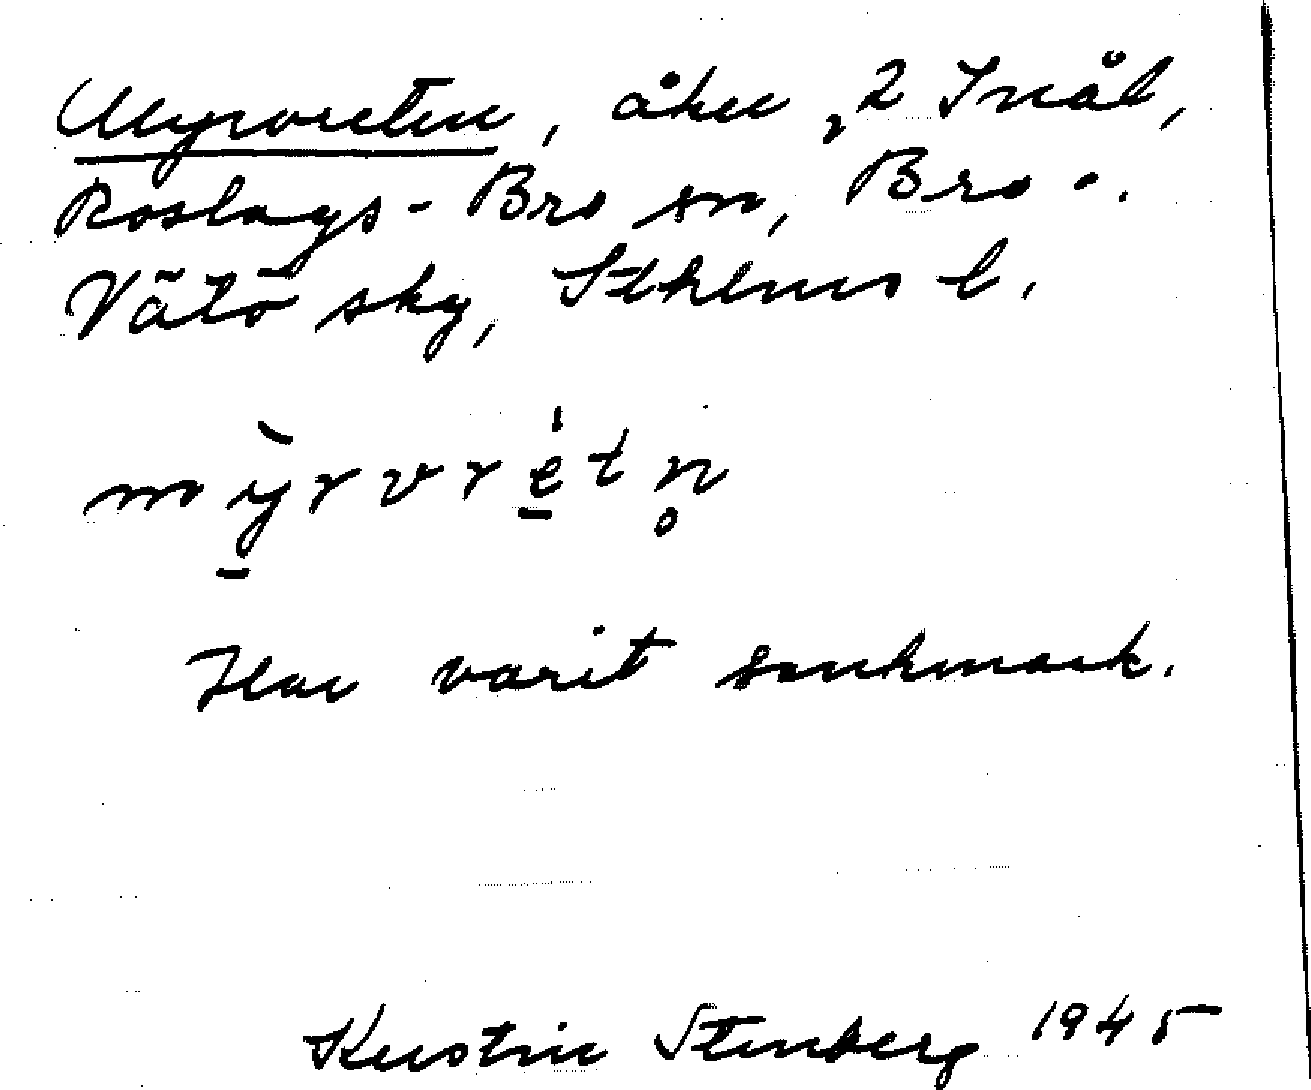 Myrvreten, åker, 2 Inål,
Roslags-Bro sn, Bro o.
Vätö skg, Sthlms l.
mỳrvrétn̥
Har varit sankmark.
Kerstin Stenberg 1945